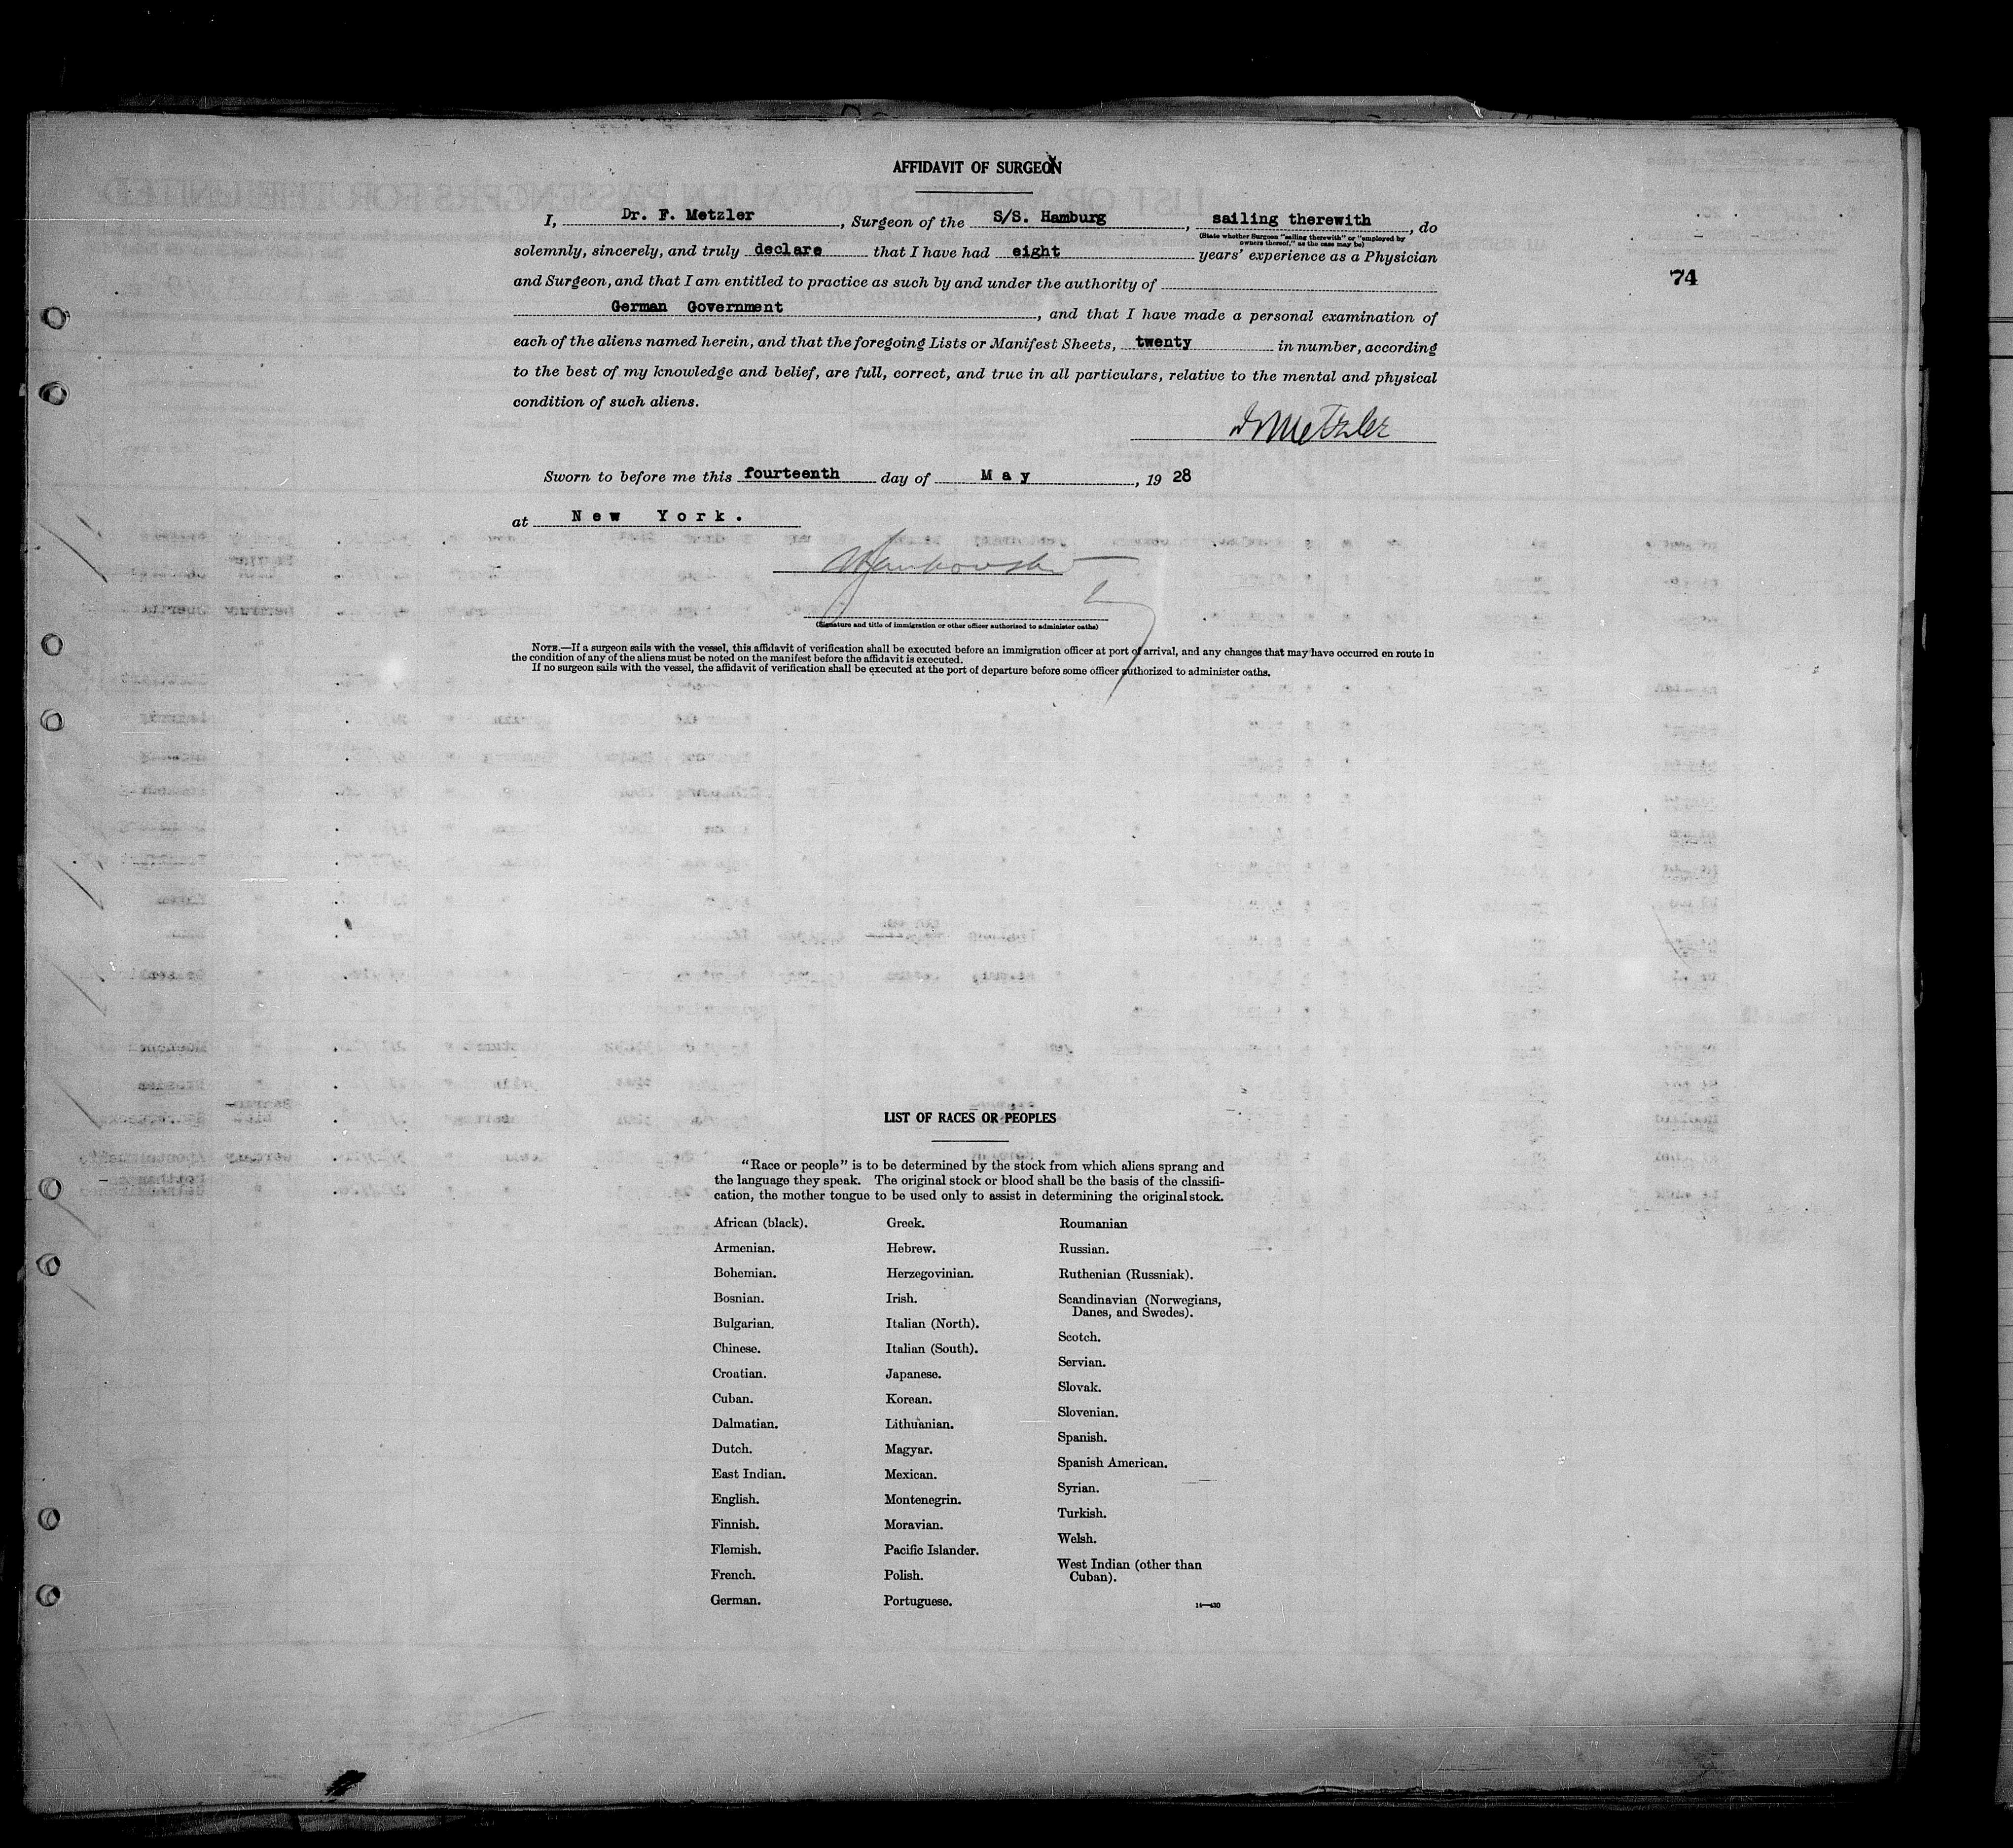 AFFIDAVIT OF SURGEON
I, Dr. F. Metzler, Surgeon of the S/S. Hamburg, sailing therewith, do
(State whether Surgeon "sailing therewith" or "employed by
owners thereof," as the case may be)
solemnly, sincerely, and truly declare that I have had eight years' experience as a Physician
74
and Surgeon, and that I am entitled to practice as such by and under the authority of
German Government, and that I have made a personal examination of
each of the aliens named herein, and that the foregoing Lists or Manifest Sheets, twenty in number, according
to the best of my knowledge and belief, are full, correct, and true in all particulars, relative to the mental and physical
condition of such aliens.
Dr Metzler
Sworn to before me this fourteenth day of May, 19 28
at New York.
(Signature and title of immigration or other officer authorized to administer oaths)
NOTE.—If a surgeon sails with the vessel, this affidavit of verification shall be executed before an immigration officer at port of arrival, and any changes that may have occurred en route in
the condition of any of the aliens must be noted on the manifest before the affidavit is executed.
If no surgeon sails with the vessel, the affidavit of verification shall be executed at the port of departure before some officer authorized to administer oaths.
LIST OF RACES OR PEOPLES
"Race or people" is to be determined by the stock from which aliens sprang and
the language they speak. The original stock or blood shall be the basis of the classifi-
cation, the mother tongue to be used only to assist in determining the original stock.
African (black).
Armenian.
Bohemian.
Bosnian.
Bulgarian.
Chinese.
Croatian.
Cuban.
Dalmatian.
Dutch.
East Indian.
English.
Finnish.
Flemish.
French.
German.
Greek.
Hebrew.
Herzegovinian.
Irish.
Italian (North).
Italian (South).
Japanese.
Korean.
Lithuanian.
Magyar.
Mexican.
Montenegrin.
Moravian.
Pacific Islander.
Polish.
Portuguese.
Roumanian
Russian.
Ruthenian (Russniak).
Scandinavian (Norwegians,
Danes, and Swedes).
Scotch.
Servian.
Slovak.
Slovenian.
Spanish.
Spanish American.
Syrian.
Turkish.
Welsh.
West Indian (other than
Cuban).
14—430